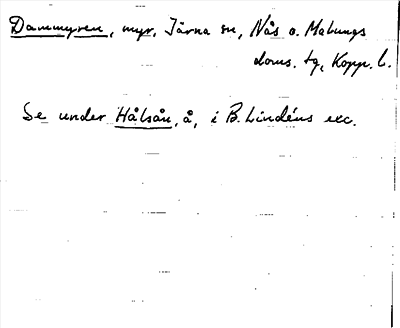 Dammyren, myr, Järna sn, Nås o. Malungs
doms. tg, Kopp. l.
Se under Hålsån, å, i B. Lindéns exc.